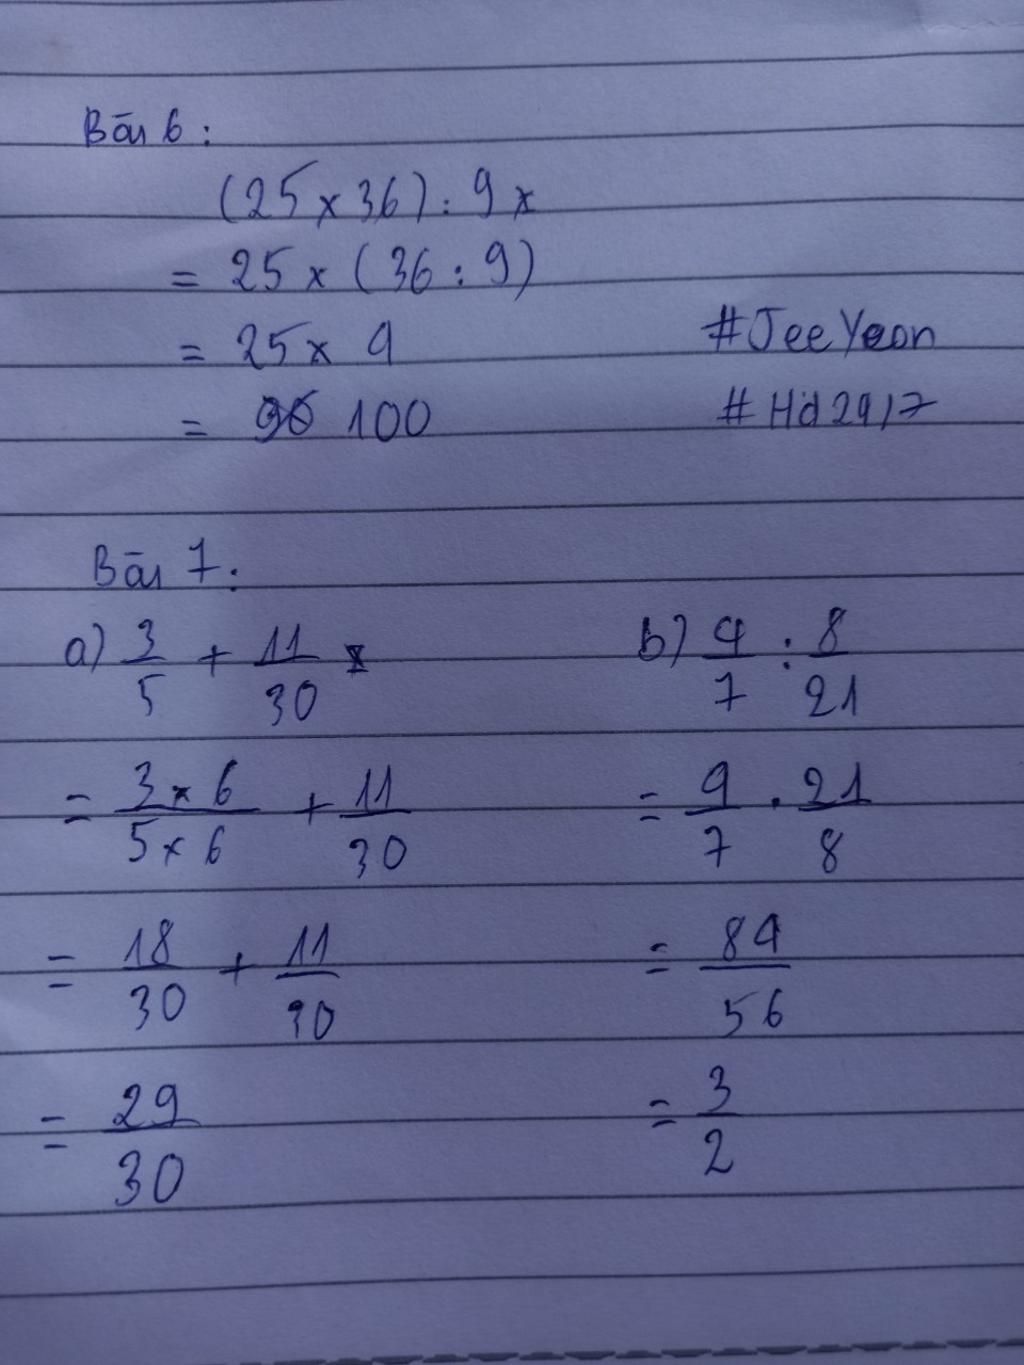 Bài 6:
(25 x 36) : 9
= 25 x (36 : 9)
= 25 x 4
= 100
#JeeYeon
#Hd2417
Bài 7:
a) 3/5 + 11/30
= (3 x 6)/(5 x 6) + 11/30
= 18/30 + 11/30
= 29/30
b) 4/7 : 8/21
= 4/7 . 21/8
= 84/56
= 3/2